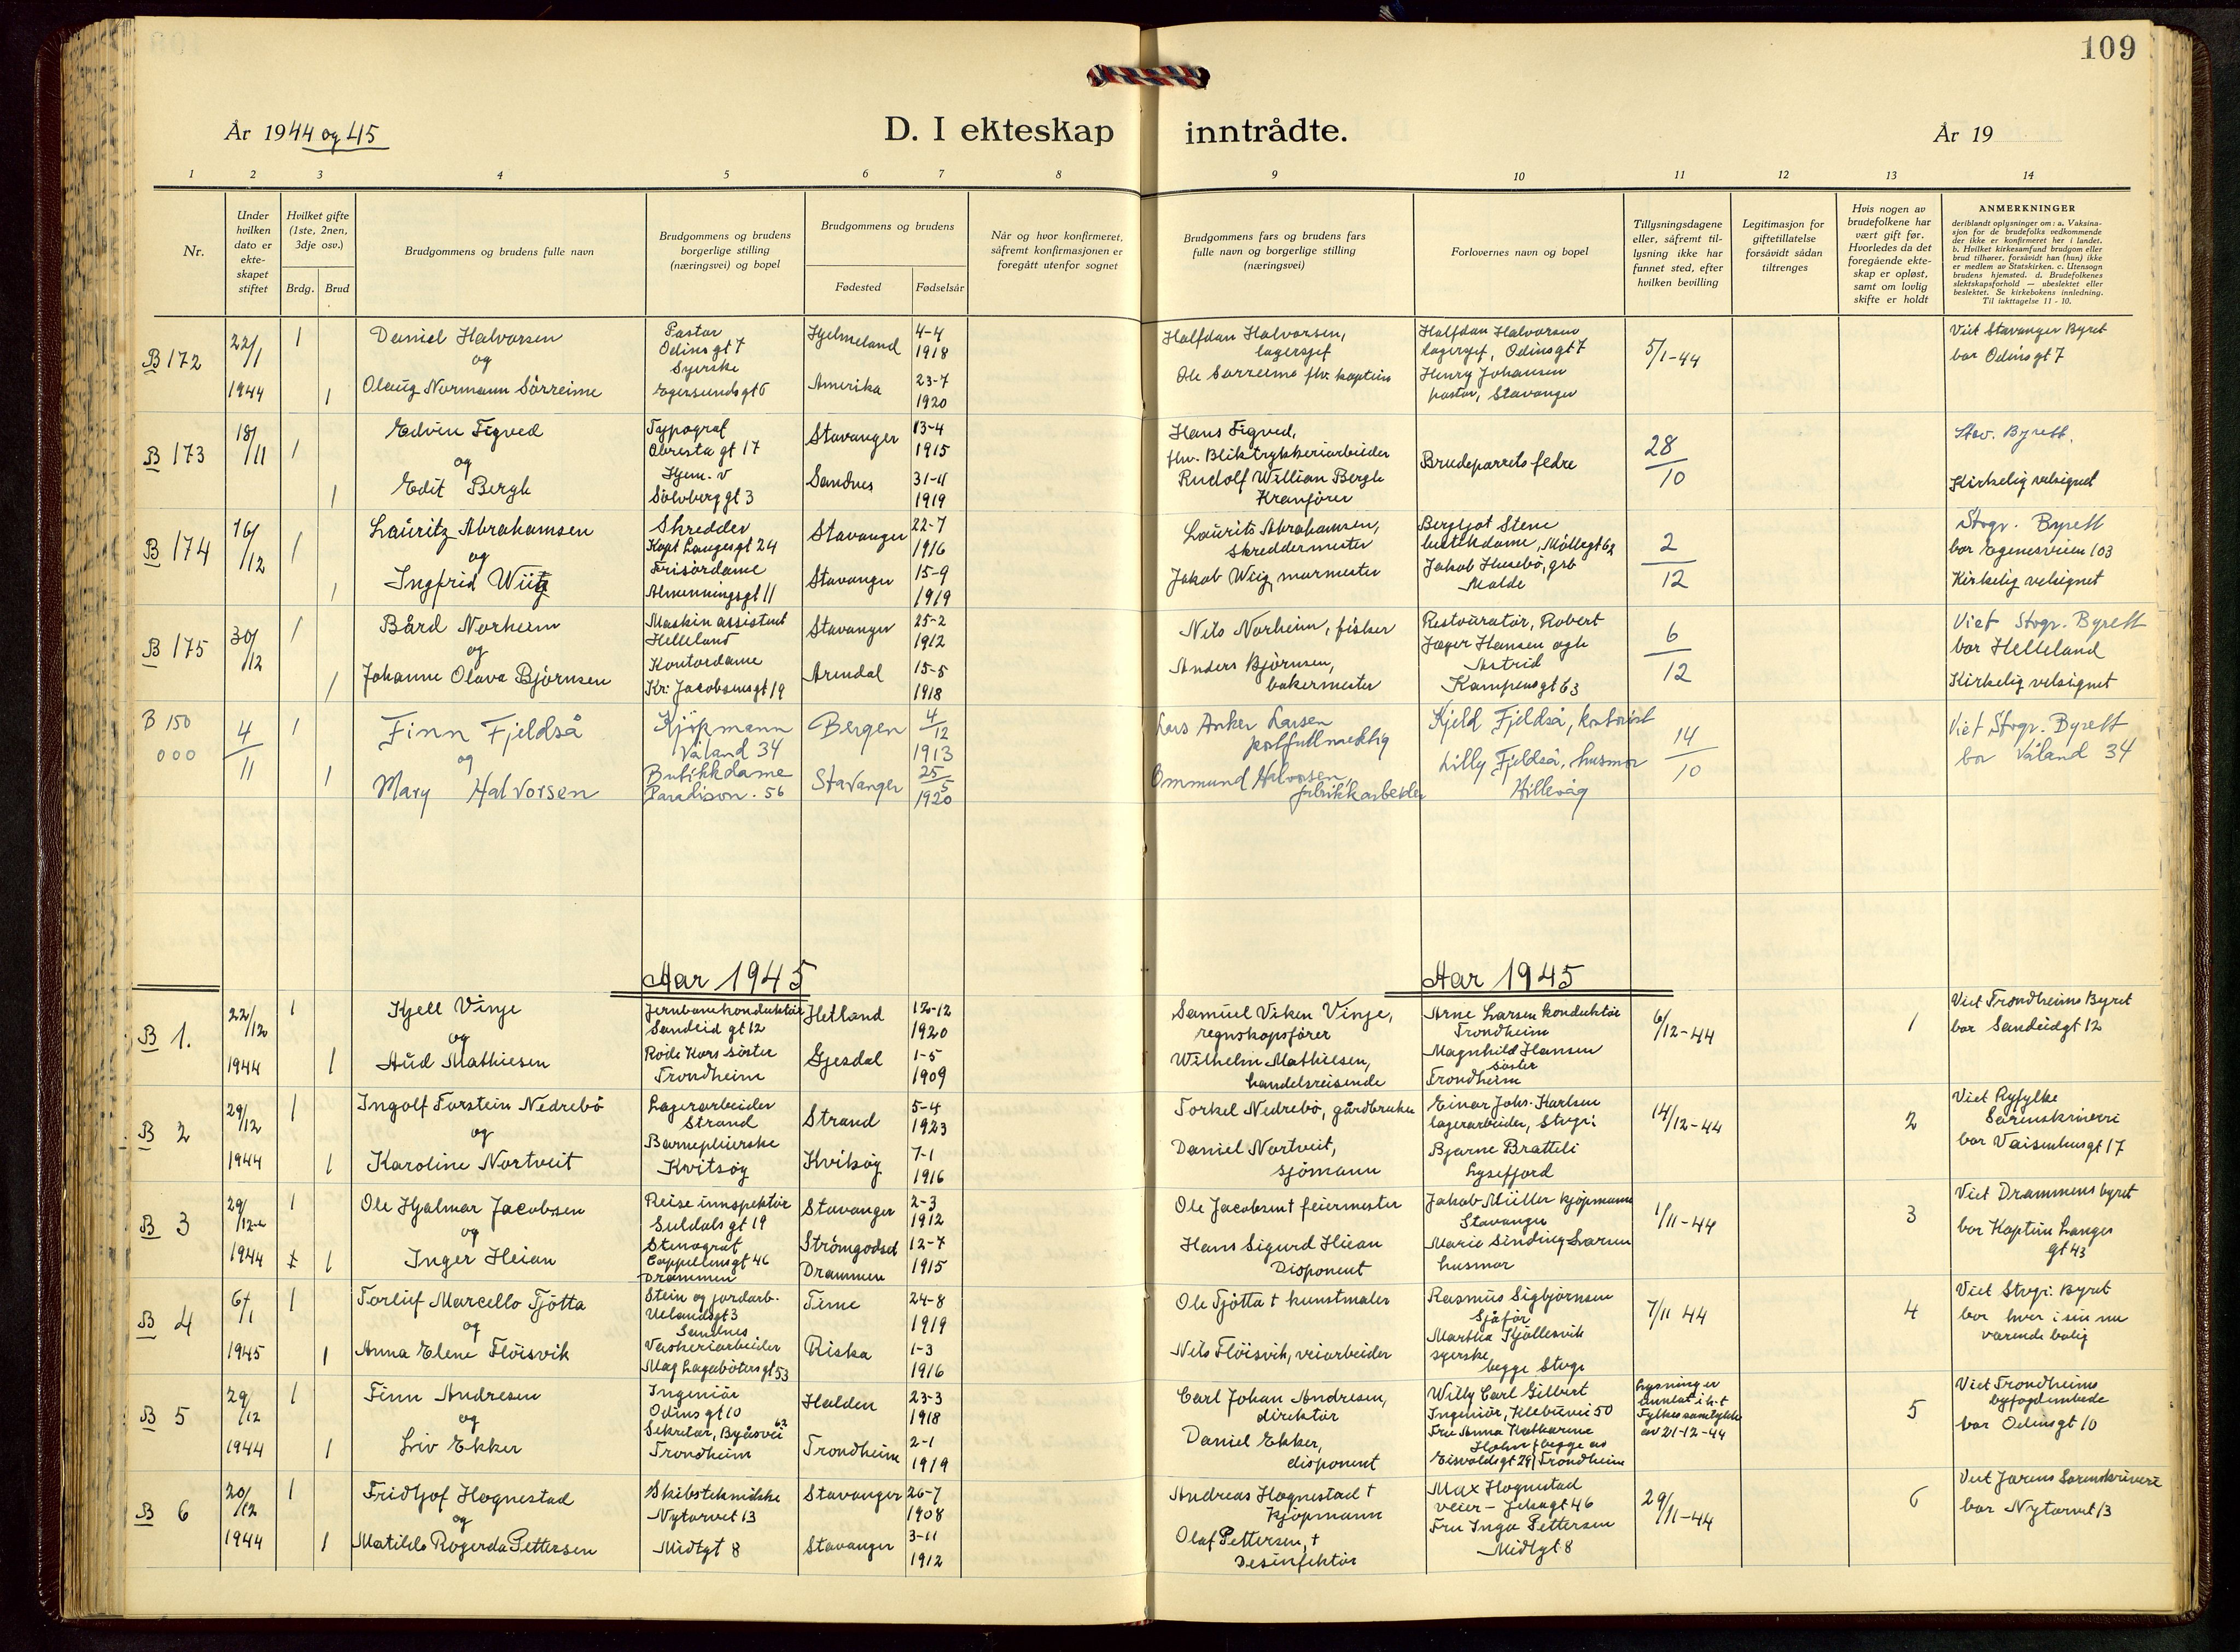 109
År 1944 og 45
D. I ekteskap inntrådte.
År 19
1 2 3 4 5 6 7 8 9 10 11 12 13 14
Nr.
Under hvilken dato er ekte- skapet stiftet
Hvilket gifte (1ste, 2nen, 3dje osv.)
Brdg. Brud
Brudgommens og brudens fulle navn
Brudgommens og brudens borgerlige stilling (næringsvei) og bopel
Brudgommens og brudens
Fødested Fødselsår
Når og hvor konfirmeret, såfremt konfirmasjonen er foregått utenfor sognet
Brudgommens fars og brudens fars fulle navn og borgerlige stilling (næringsvei)
Forlovernes navn og bopel
Tillysningsdagene eller, såfremt til- lysning ikke har funnet sted, efter hvilken bevilling
Legitimasjon for giftetillatelse forsåvidt sådan tiltrenges
Hvis nogen av brudefolkene har vært gift før. Hvorledes da det foregående ekte- skap er opløst, samt om lovlig skifte er holdt
ANMERKNINGER
deriblandt oplysninger om: a. Vaksina- sjon for de brudefolks vedkommende der ikke er konfirmeret her i landet. b. Hvilket kirkesamfund brudgom eller brud tilhører, forsåvidt han (hun) ikke er medlem av Statskirken. c. Utensogn brudens hjemsted. d. Brudefolkenes slektskapsforhold — ubeslektet eller beslektet. Se kirkebokens innledning. Til iakttagelse 11 - 10.
B 172 22/1 1944 1 1
Daniel Halvorsen
og
Olaug Normann Sörreime
Pastor
Odins gt 7
Syerske
Egersundsgt 6
Hjelmeland 4-4 1918
Amerika 23-7 1920
Halfdan Halvorsen,
lagersjef
Ole Sörreime fhv. kaptein
Halfdan Halvorsen
lagersjef, Odinsgt 7
Henry Johansen
pastor, Stavanger
5/1-44
Viet Stavanger Byret
bor Odins gt 7
B 173 18/11 1 1
Edvin Tegved
og
Edit Bergh
Typograf
Obresta gt 17
Hjem. v
Sölvberg gt 3
Stavanger 13-4 1915
Sandnes 31-11 1919
Hans Tigved,
fhv. Bliktrykkeriarbeider
Rudolf Willian Bergh
Kranförer
Brudeparrets fedre
28/10
Stav. Byrett.
Kirkelig velsignet
B 174 16/12 1 1
Lauritz Abrahamsen
og
Ingfrid Wiig
Skredder
Kapt Langesgt 24
Frisördame
Almenningsgt 11
Stavanger 22-7 1916
Stavanger 15-9 1919
Laurits Abrahamsen,
Skreddermester
Jakob Wiig murmester
Bergljot Stene
butikdame, Möllegt 62
Jakob Husebö, grb
Malde
2/12
Stvgr. Byrett
bor Egenesveien 103
Kirkelig velsignet
B 175 30/12 1 1
Bård Norheim
og
Johanne Olava Björnsen
Maskin assistent
Helleland
Kontordame
Kr. Jacobsensgt 19
Stavanger 25-2 1912
Arendal 15-5 1918
Nils Norheim, fisker
Anders Björnsen,
bakermester
Restauratör, Robert
Jæger Hansen ogh
Astrid
Kampensgt 63
6/12
Viet Stvgr. Byrett
bor Helleland
Kirkelig velsignet
B 150
000
4/11 1 1
Finn Fjeldså
og
Mary Halvorsen
Kjöpmann
Våland 34
Butikkdame
Paradisv. 56
Bergen 4/12 1913
Stavanger 25/5 1920
Lars Anker Larsen
postfullmektig
Ommund Halvorsen,
fabrikkarbeider
Kjeld Fjeldså, kontorist
Lilly Fjeldså, husmor
Hillevåg
14/10
Viet Stvgr. Byrett
bor Våland 34
Aar 1945
Aar 1945
B 1. 22/12 1944 1 1
Kjell Vinje
og
Aud Mathiesen
Jernbanekonduktör
Sandeid gt 12
Röde Kors söster
Trondheim
Hetland 12-12 1920
Gjesdal 1-5 1909
Samuel Viken Vinje,
regnskapsförer
Wilhelm Mathiesen,
handelsreisende
Arne Larsen konduktör
Trondheim
Magnhild Hansen
söster
Trondheim
6/12-44
1
Viet Trondheims Byret
bor Sandeidgt 12
B 2 29/12 1944 1 1
Ingolf Torstein Nedrebö
og
Karoline Nortveit
Lagerarbeider
Strand
Barnepleierske
Kvitsöy
Strand 5-4 1923
Kvitsöy 7-1 1916
Torkel Nedrebö, gårdbruker
Daniel Nortveit,
sjömann
Einar Johs. Karlsen
lagerarbeider, Stvgr:
Bjarne Bratteli
Lysefjord
14/12-44
2
Viet Ryfylke
Sorenskriveri
bor Vaisenhusgt 17
B 3 29/12 1944 1 1
Ole Hjalmar Jacobsen
og
Inger Heian
Reise innspektör
Suldals gt 19
Stenograf
Cappelensgt 46
Drammen
Stavanger 2-3 1912
Strömgodset
Drammen
12-7 1915
Ole Jacobsen † feiermester
Hans Sigurd Hiean
Disponent
Jakob Müller kjöpmann
Stavanger
Marie Sinding-Larsen
husmor
1/11-44
3
Viet Drammens byret
bor Kaptein Langes
gt 43
B 4 6/1 1945 1 1
Torleif Marcello Tjötta
og
Anna Elene Flöisvik
Stein og jordarb.
Uelandsgt 3
Sandnes
Vaskeriarbeider
Mag Lagabötersgt 53
Time 24-8 1919
Riska 1-3 1916
Ole Tjötta † kunstmaler
Nils Flöisvik, veiarbeider
Rasmus Sigbjörnsen
Sjåför
Martha Kjöllesvik
syerske
begge Stvgr
7/11 44
4
Viet Stvgr: Byret
bor hver i sin nu
værende bolig
B 5 29/12 1944 1 1
Finn Andresen
og
Liv Ekker
Ingeniör
Odins gt 10
Sekretær, Byåsvei 62
Trondheim
Halden 23-3 1918
Trondheim 2-1 1919
Carl Johan Andresen,
direktör
Daniel Ekker,
disponent
Willy Carl Gilbert
Ingeniör, Klebuvei 50
Fru Anna Katharine
Holm, begge av
Eisvoldsgt 29 Trondheim
Lysning er
unnlatt i h.t
Fylkes samtykke
av 21-12-44
5
Viet Trondheims
byfogdembede
bor Odinsgt 10
B 6 20/12 1944 1 1
Fridtjof Hognestad
og
Matilde Rogerda Pettersen
Skibstekniske
Nytorvet 13
Midtgt 8
Stavanger 26-7 1908
Stavanger 3-11 1912
Andreas Hognestad †
Kjöpmann
Olaf Pettersen, †
Desinfektör
Max Hognestad
veier - Jelsagt 46
Fru Inga Pettersen
Midtgt 8
29/11-44
6
Viet Jærens Sorenskriveri
bor Nytorvet 13